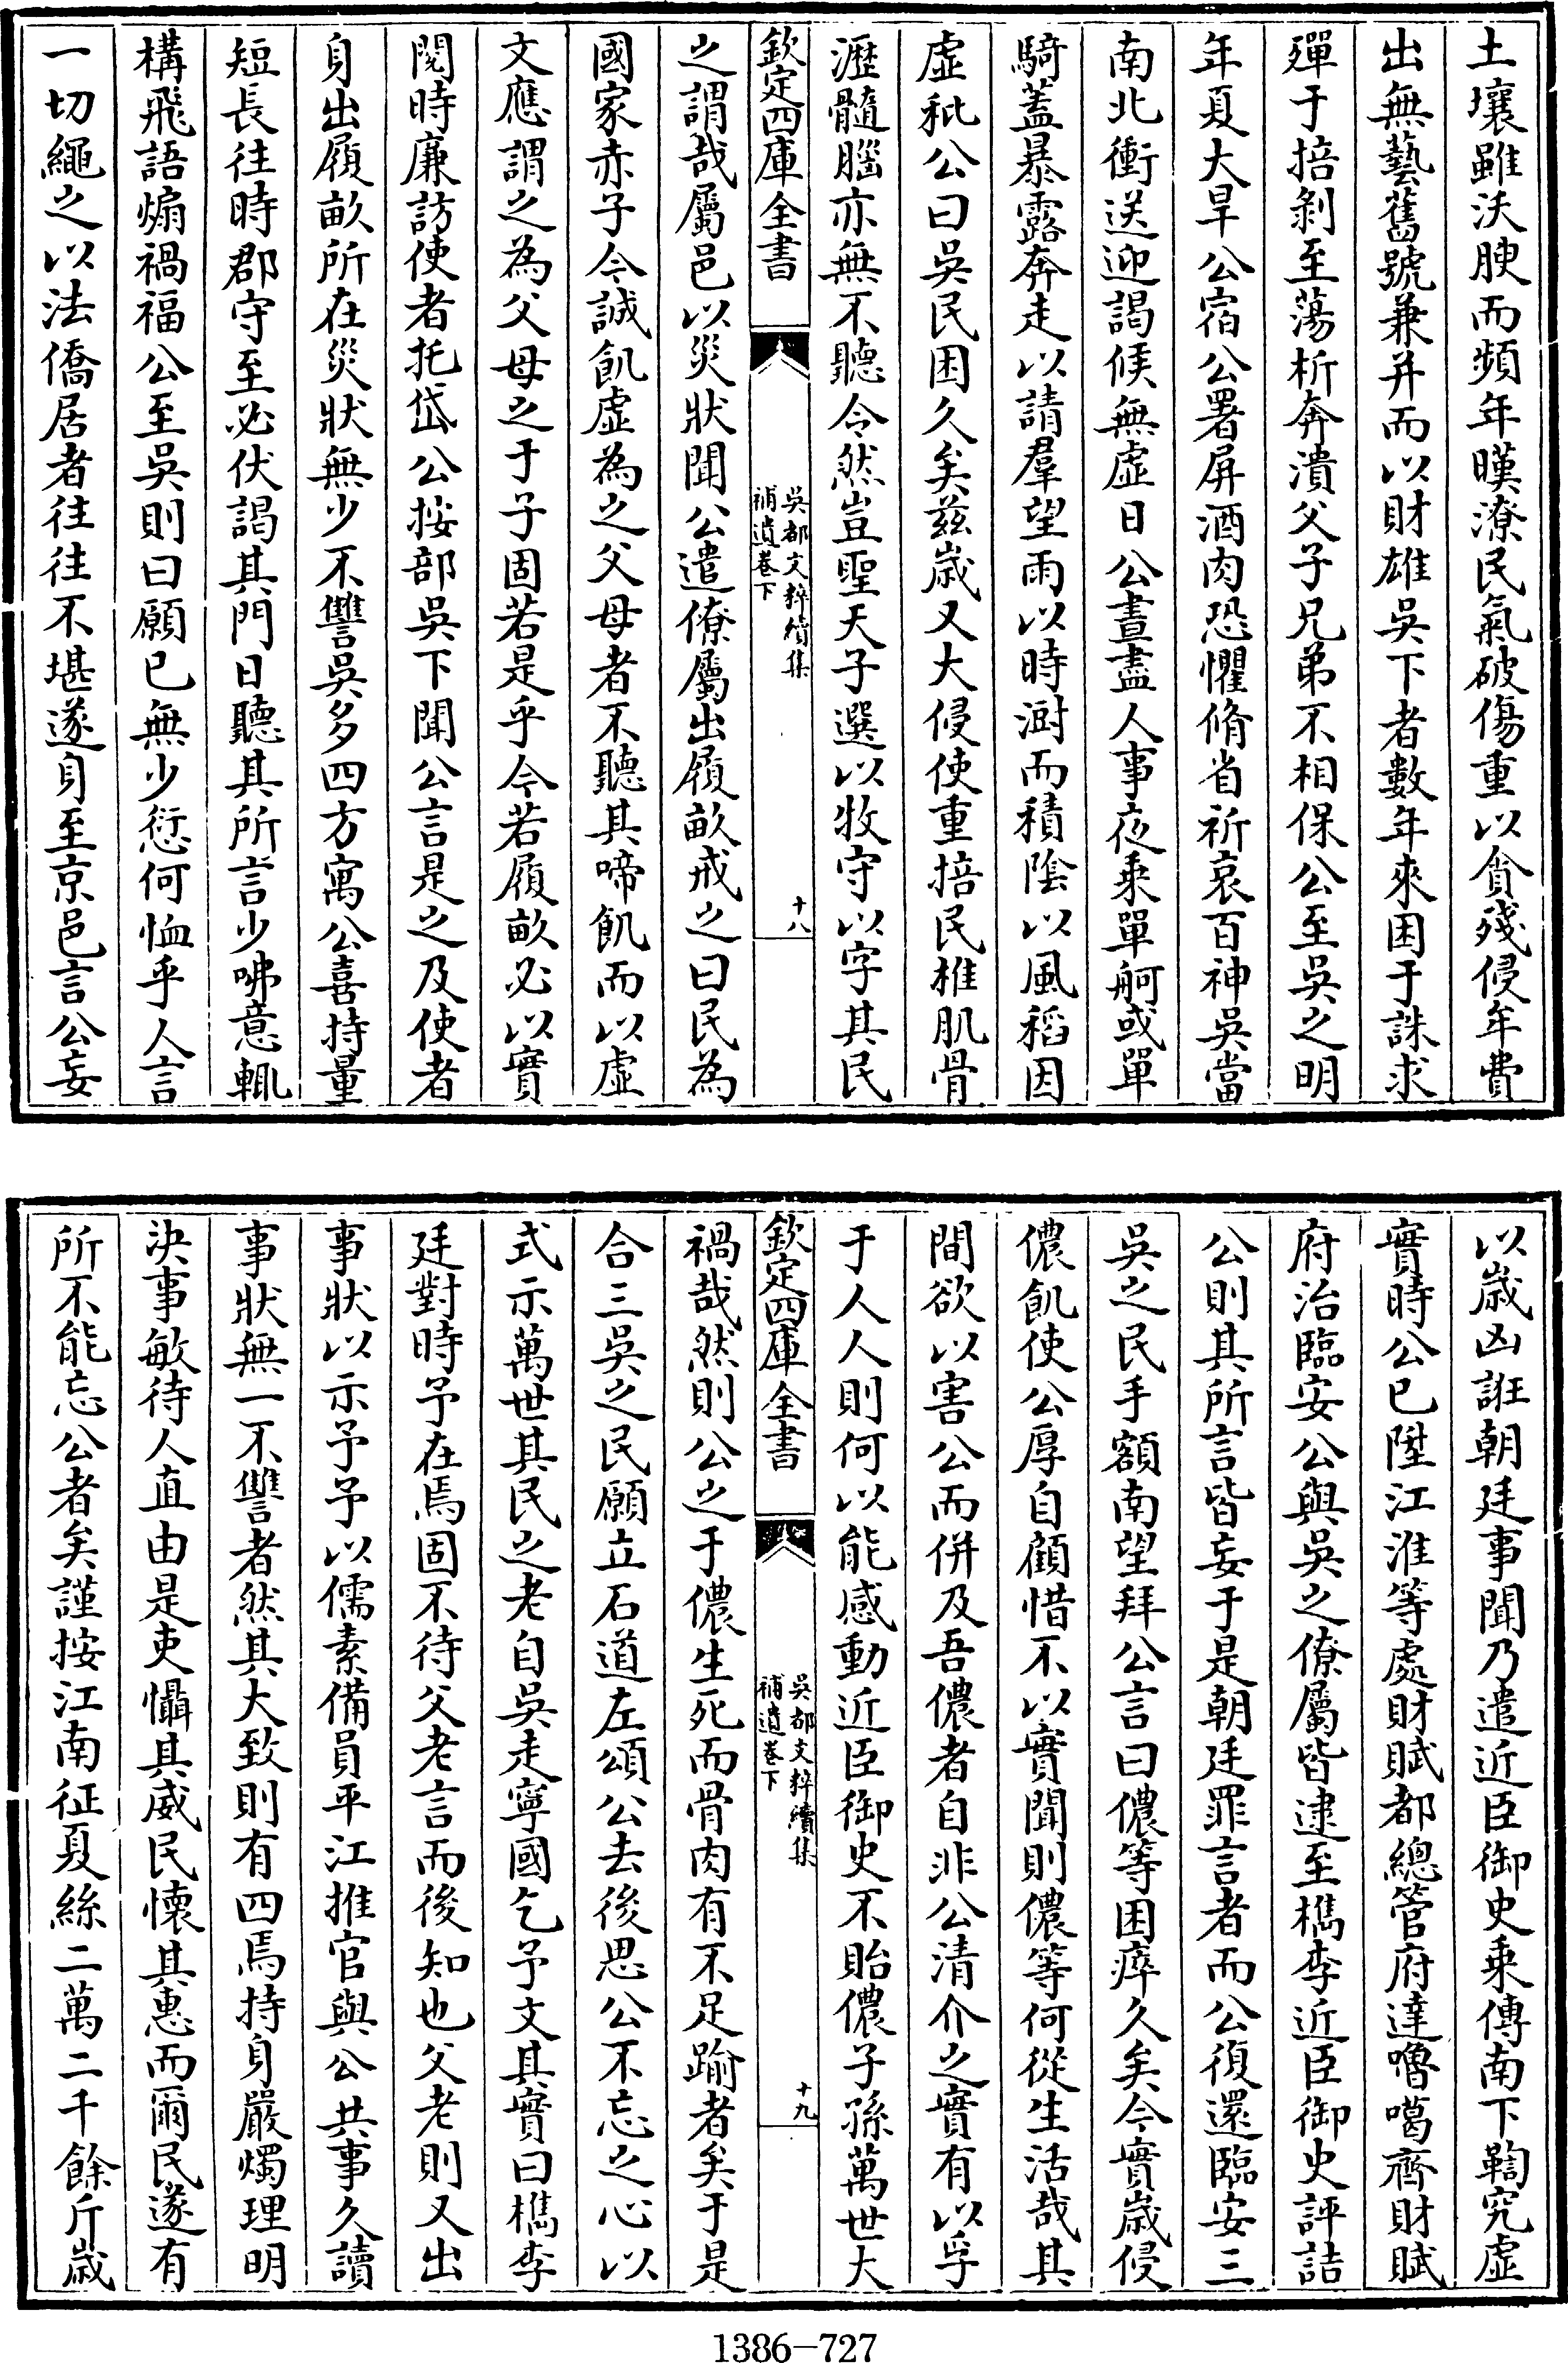 土壤雖沃腴而頻年暵潦民氣破傷重以貪殘侵牟費
出無藝舊號兼并而以財雄吳下者數年來困于誅求
殫于掊剝至蕩析奔潰父子兄弟不相保公至吳之明
年夏大旱公宿公署屏酒肉恐懼脩省祈哀百神吳當
南北衝送迎謁候無虛日公晝盡人事夜乘單舸或單
騎蓋暴露奔走以請羣望雨以時澍而積陰以風稻因
虛秕公曰吳民困久矣兹歳又大侵使重掊民椎肌骨
瀝髓腦亦無不聽令然豈聖天子選以牧守以字其民
欽定四庫全書
吳都文粹續集
補遺卷下
十八
之謂哉屬邑以災狀聞公遣僚屬出履畝戒之曰民為
國家赤子今誠飢虛為之父母者不聽其啼飢而以虛
文應謂之為父母之于子固若是乎今若履畝必以實
閱時廉訪使者托岱公按部吳下聞公言是之及使者
身出履畝所在災狀無少不讐吳多四方寓公喜持量
短長往時郡守至必伏謁其門日聽其所言少咈意輒
構飛語煽禍福公至吳則曰願已無少愆何恤乎人言
一切繩之以法僑居者往往不堪遂自至京邑言公妄
以歳凶誑朝廷事聞乃遣近臣御史乘傳南下鞫究虛
實時公已陞江淮等處財賦都總管府達嚕噶齊財賦
府治臨安公與吳之僚屬皆逮至檇李近臣御史評詰
公則其所言皆妄于是朝廷罪言者而公復還臨安三
吳之民手額南望拜公言曰儂等困瘁久矣今實歳侵
儂飢使公厚自顧惜不以實聞則儂等何從生活哉其
間欲以害公而併及吾儂者自非公清介之實有以孚
于人人則何以能感動近臣御史不貽儂子孫萬世大
欽定四庫全書
吳都文粹續集
補遺卷下
十九
禍哉然則公之于儂生死而骨肉有不足踰者矣于是
合三吳之民願立石道左頌公去後思公不忘之心以
式示萬世其民之老自吳走寧國乞予文其實曰檇李
廷對時予在焉固不待父老言而後知也父老則又出
事狀以示予予以儒素備員平江推官與公共事久讀
事狀無一不讐者然其大致則有四焉持身嚴燭理明
決事敏待人直由是吏懾其威民懷其惠而爾民遂有
所不能忘公者矣謹按江南征夏絲二萬二千餘斤歳
1386-727